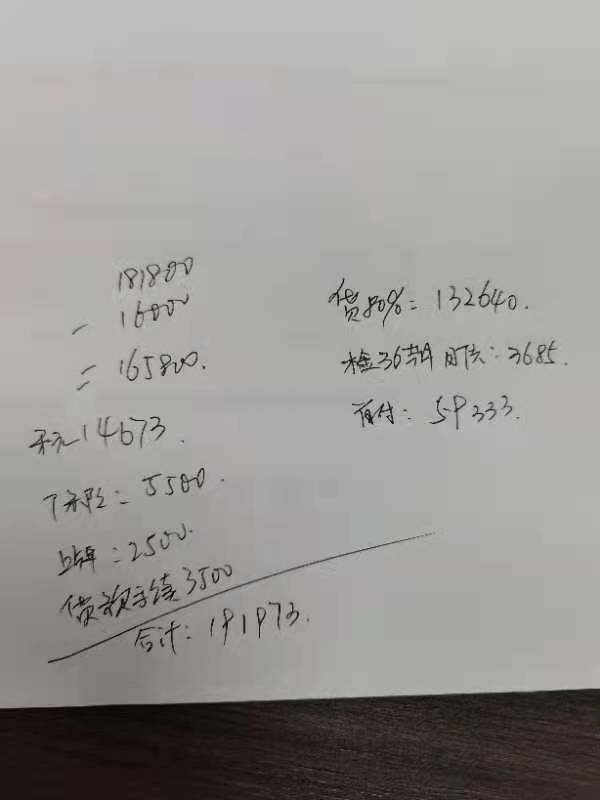 181800
- 16000
= 165800.
税14673.
保险:5500.
上牌:2500.
贷款手续3500
合计:191973.
贷80%:132640.
36期月供:3685.
首付:59333.